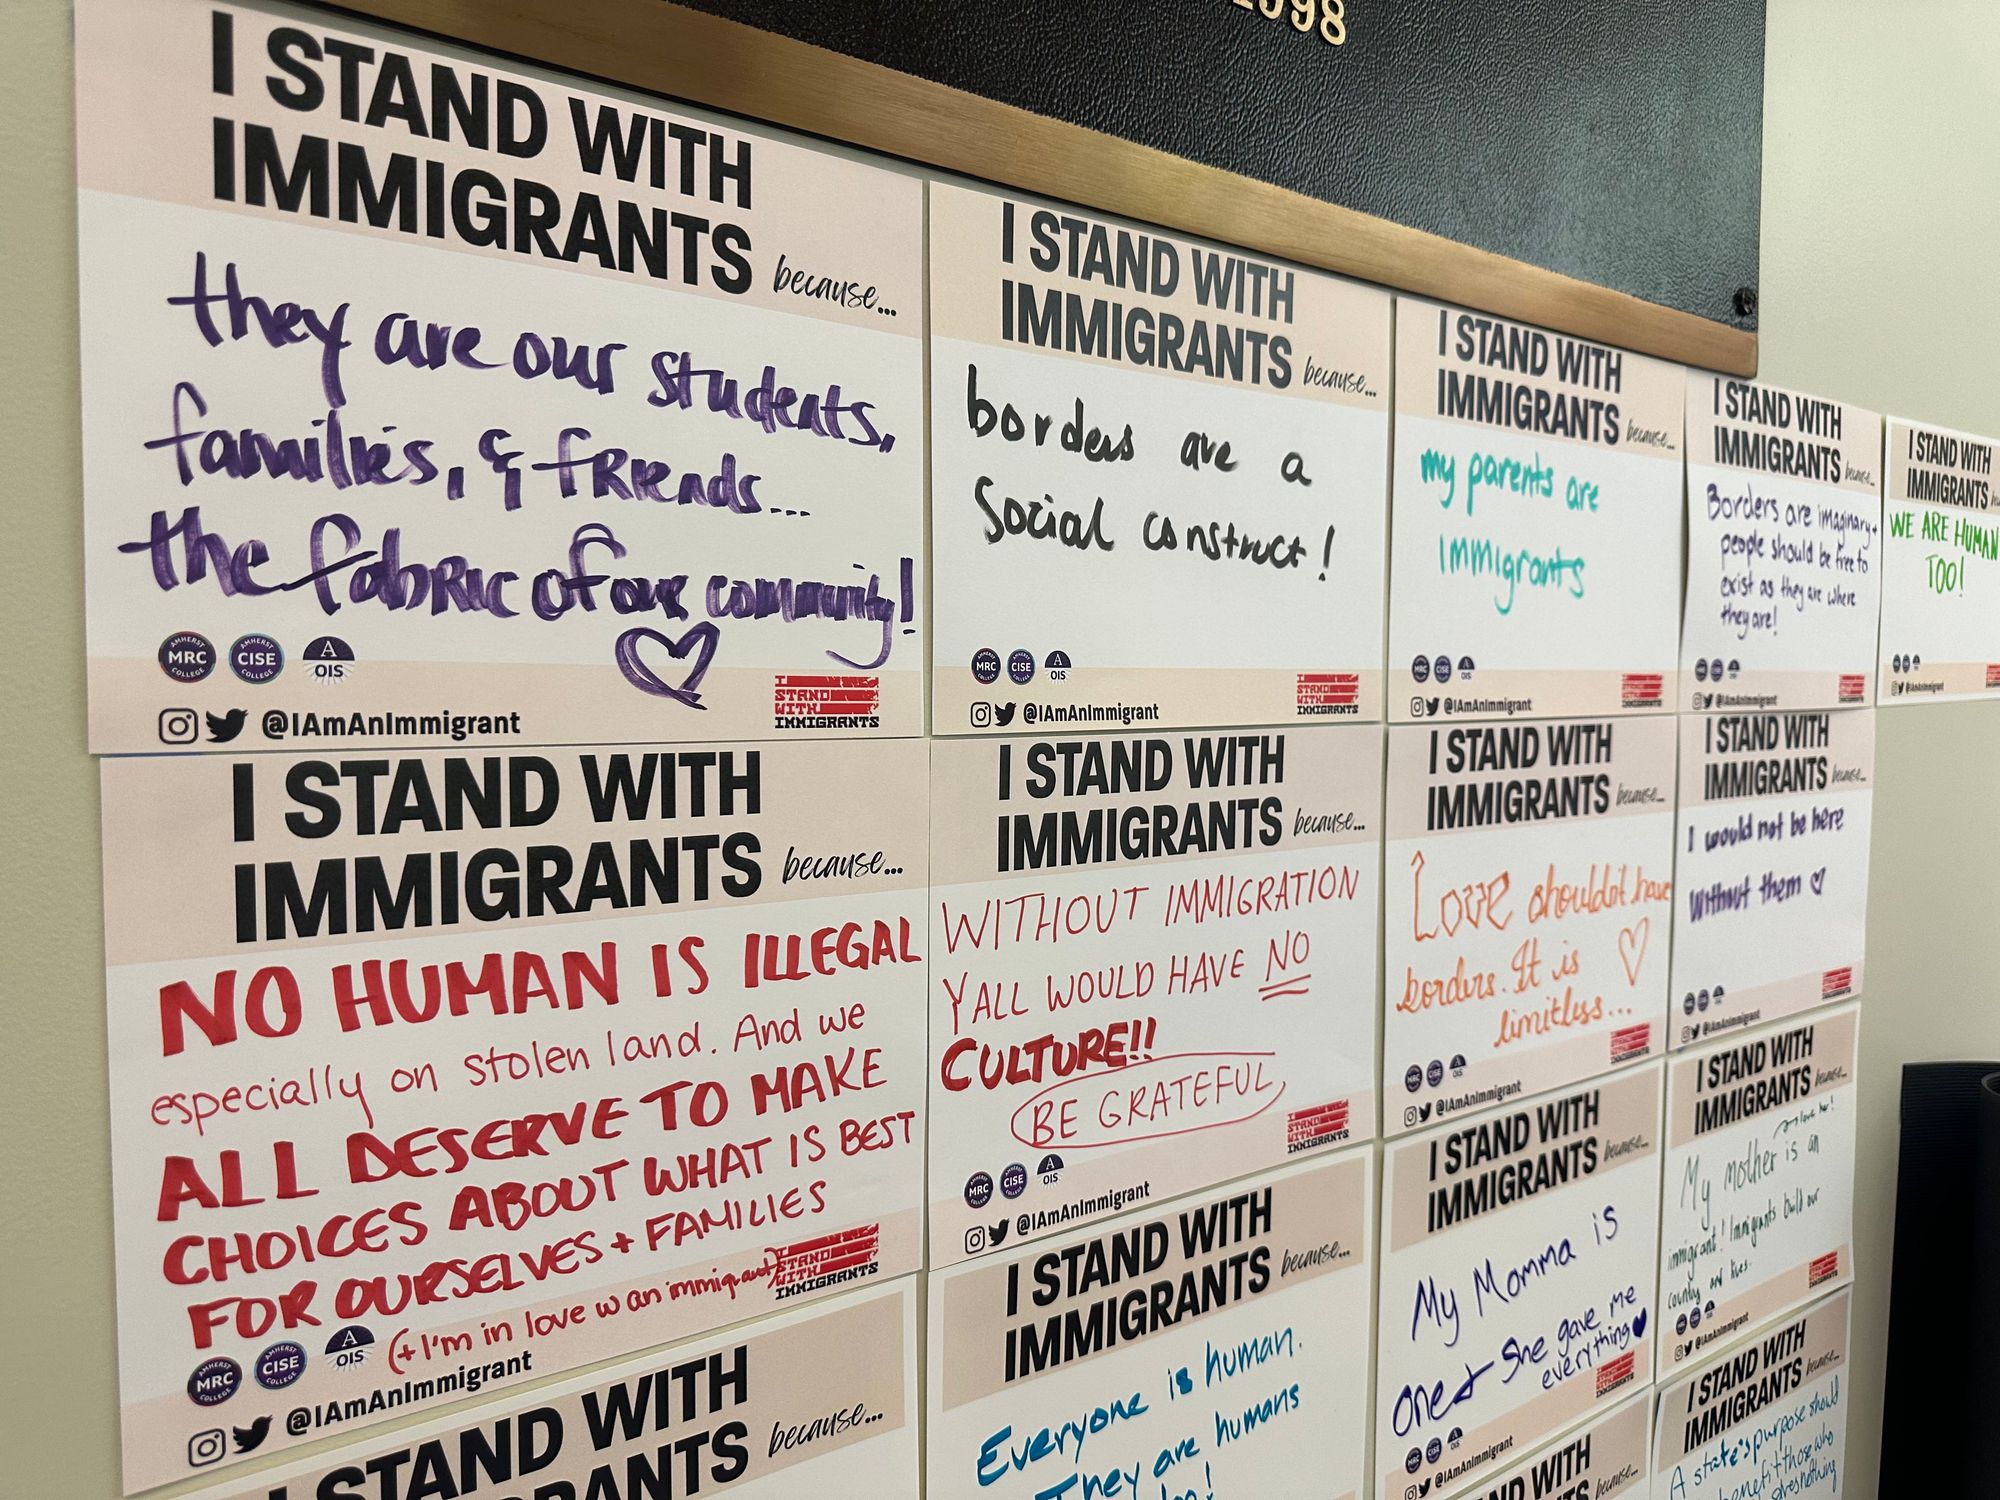 1998
I STAND WITH
IMMIGRANTS because...
they are our students,
families, & friends...
the fabric of our community!
AMHERST
MRC
COLLEGE
AMHERST
CISE
COLLEGE
A
OIS
I
STAND
WITH
IMMIGRANTS
@IAmAnImmigrant
I STAND WITH
IMMIGRANTS because...
borders are a
Social construct!
MRC
CISE
A
OIS
I
STAND
WITH
IMMIGRANTS
@IAmAnImmigrant
I STAND WITH
IMMIGRANTS because...
my parents are
immigrants
MRC
CISE
OIS
@IAmAnImmigrant
I STAND WITH
IMMIGRANTS because...
Borders are imaginary +
people should be free to
exist as they are where
they are!
@IAmAnImmigrant
I STAND WITH
IMMIGRANTS
WE ARE HUMAN
TOO!
@IAmAnImmigrant
I STAND WITH
IMMIGRANTS because...
NO HUMAN IS ILLEGAL
especially on stolen land. And we
ALL DESERVE TO MAKE
CHOICES ABOUT WHAT IS BEST
FOR OURSELVES + FAMILIES
(+ I'm in love w an immigrant)
I
STAND
WITH
IMMIGRANTS
AMHERST
MRC
COLLEGE
AMHERST
CISE
COLLEGE
A
OIS
@IAmAnImmigrant
I STAND WITH
IMMIGRANTS because...
WITHOUT IMMIGRATION
YALL WOULD HAVE NO
CULTURE!!
BE GRATEFUL
MRC
CISE
A
OIS
I
STAND
WITH
IMMIGRANTS
@IAmAnImmigrant
I STAND WITH
IMMIGRANTS because...
Love shouldn't have
borders. It is
limitless...
MRC
CISE
OIS
@IAmAnImmigrant
I STAND WITH
IMMIGRANTS because...
I would not be here
without them
@IAmAnImmigrant
I STAND WITH
IMMIGRANTS because...
STAND WITH
GRANTS because...
I STAND WITH
IMMIGRANTS because...
Everyone is human.
They are humans
too!
I STAND WITH
IMMIGRANTS because...
My Momma is
one & She gave me
everything
@IAmAnImmigrant
I STAND WITH
IMMIGRANTS because...
I love her!
My mother is an
immigrant! Immigrants build our
country and lives.
@IAmAnImmigrant
ND WITH
because...
I STAND WITH
IMMIGRANTS because...
A state's purpose should
benefit those who